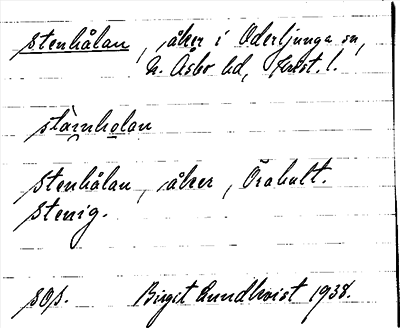 stenhålan, åker i Oderljunga sn,
N. Åsbo hd, Krist. l.
stäinholan
Stenhålan, åker, Örahult.
Stenig.
sOs. Birgit Lundkvist 1938.